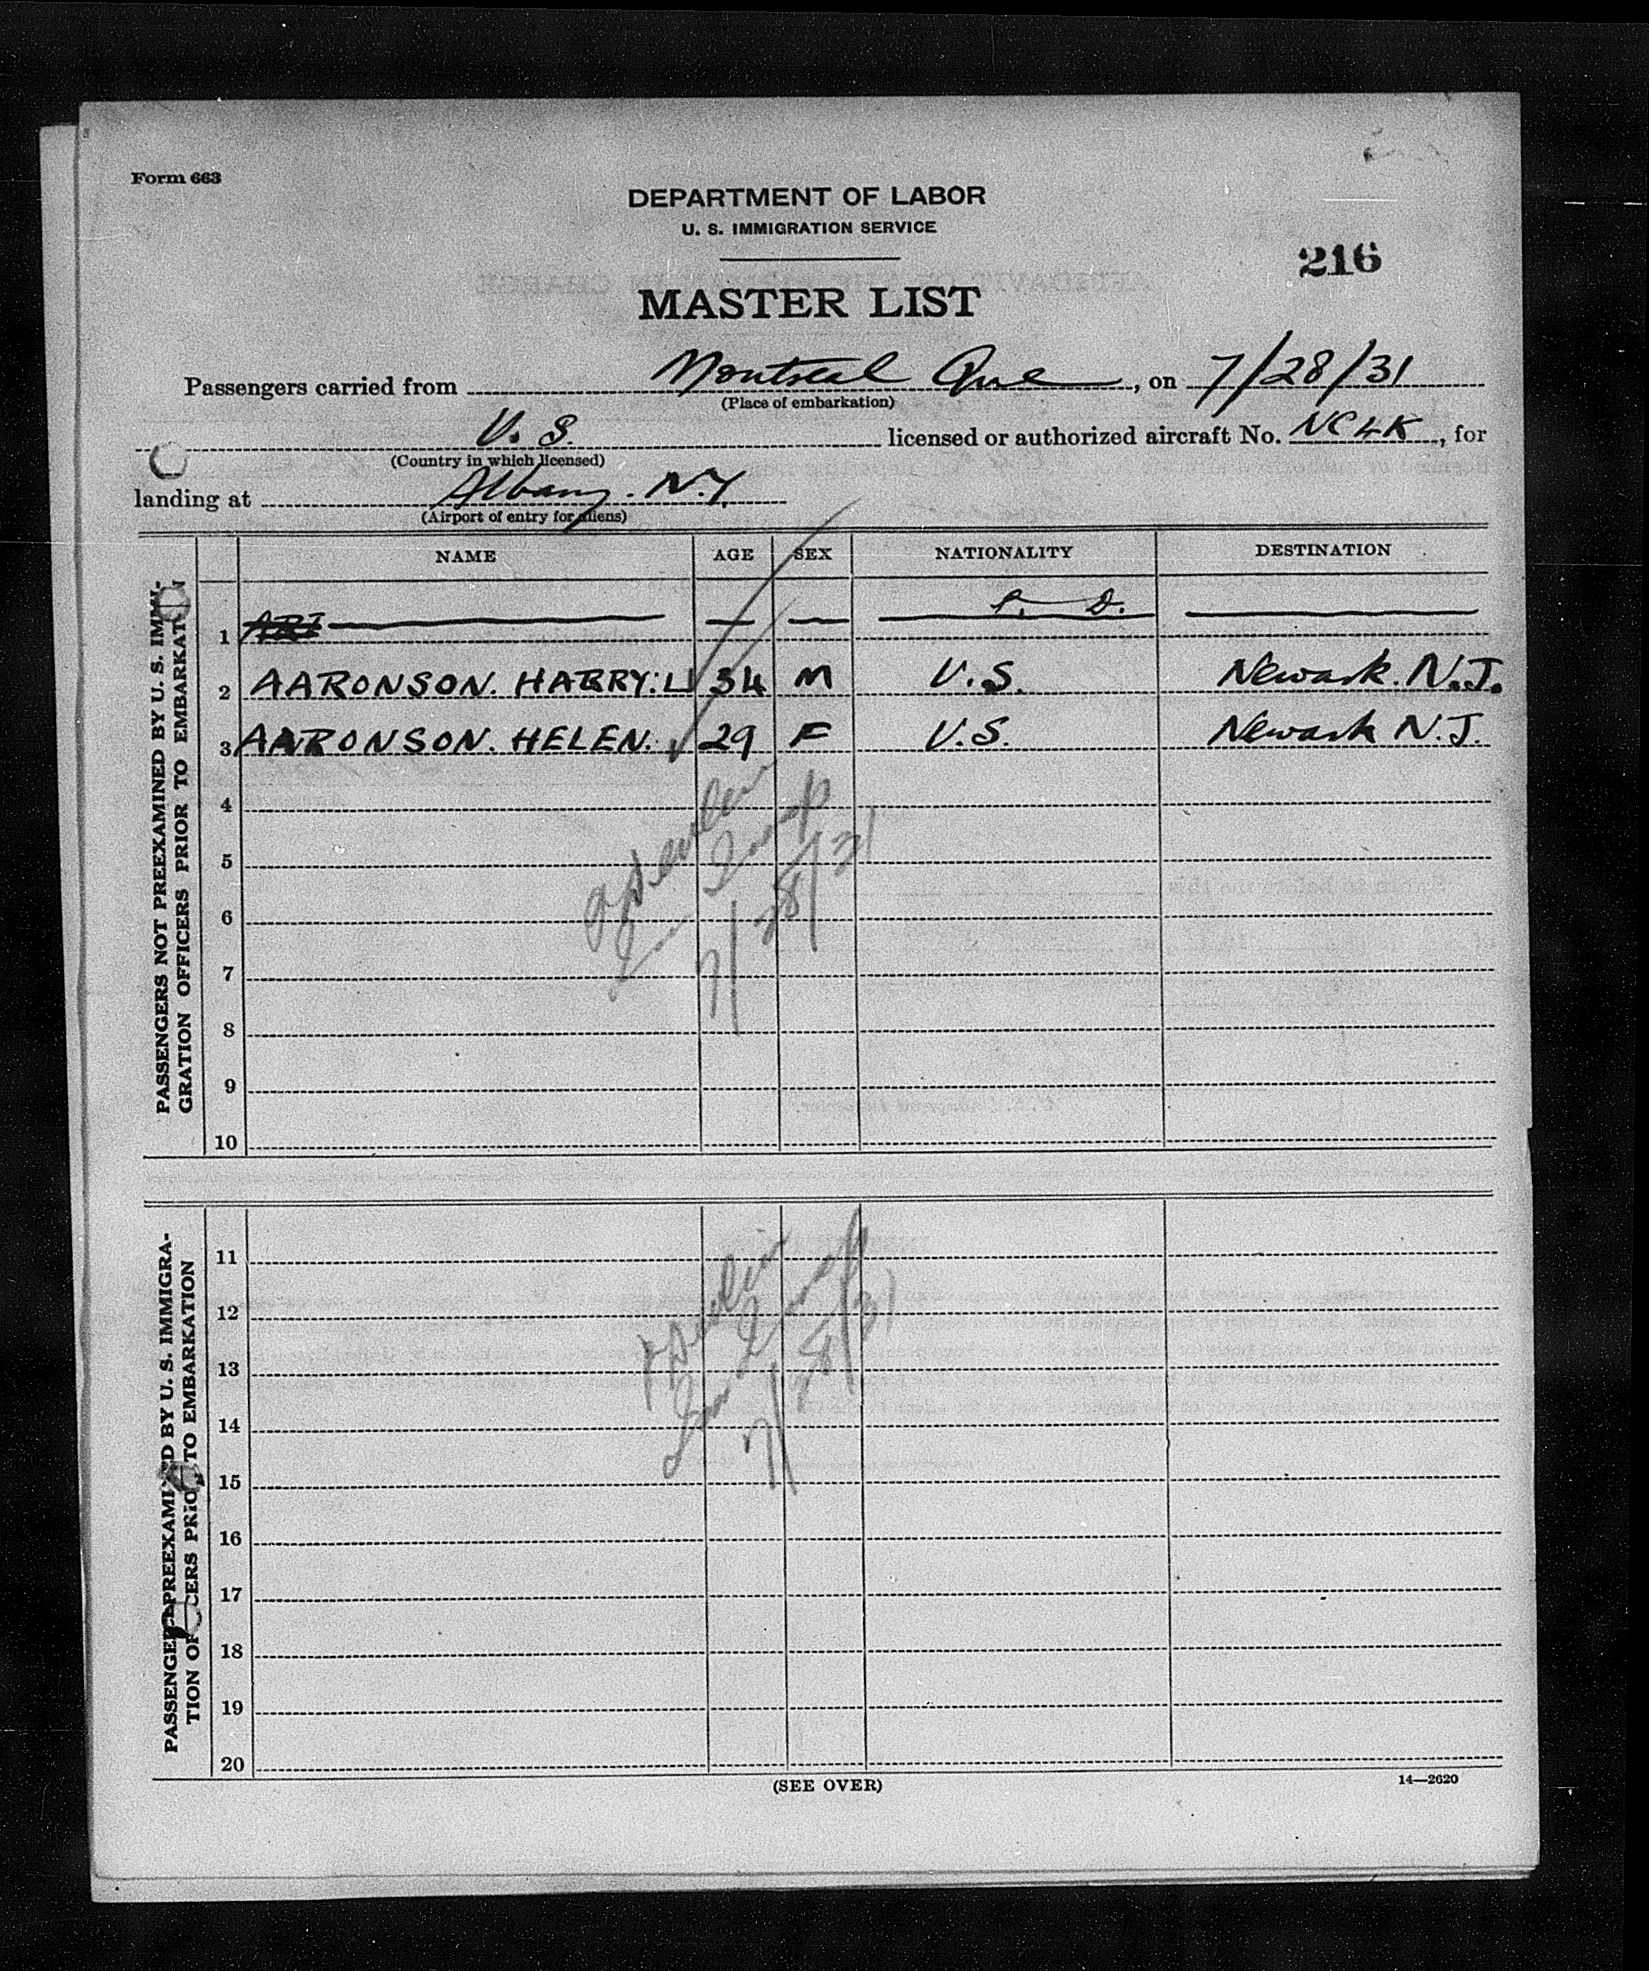 Form 663
DEPARTMENT OF LABOR
U. S. IMMIGRATION SERVICE
216
MASTER LIST
Passengers carried from Montreal Que, on 7/28/31
(Place of embarkation)
U. S. licensed or authorized aircraft No. NC4K, for
(Country in which licensed)
landing at Albany. N.Y.
(Airport of entry for aliens)
NAME AGE SEX NATIONALITY DESTINATION
PASSENGERS NOT PREEXAMINED BY U. S. IMMI-
GRATION OFFICERS PRIOR TO EMBARKATION
1
2 AARONSON. HARRY. L 34 M U.S. Newark. N.J.
3 AARONSON. HELEN. 29 F U.S. Newark N.J.
4
5
6
7
8
9
10
7/28/31
PASSENGERS PREEXAMINED BY U. S. IMMIGRA-
TION OFFICERS PRIOR TO EMBARKATION
11
12
13
14
15
16
17
18
19
20
7/28/31
(SEE OVER)
14—2620